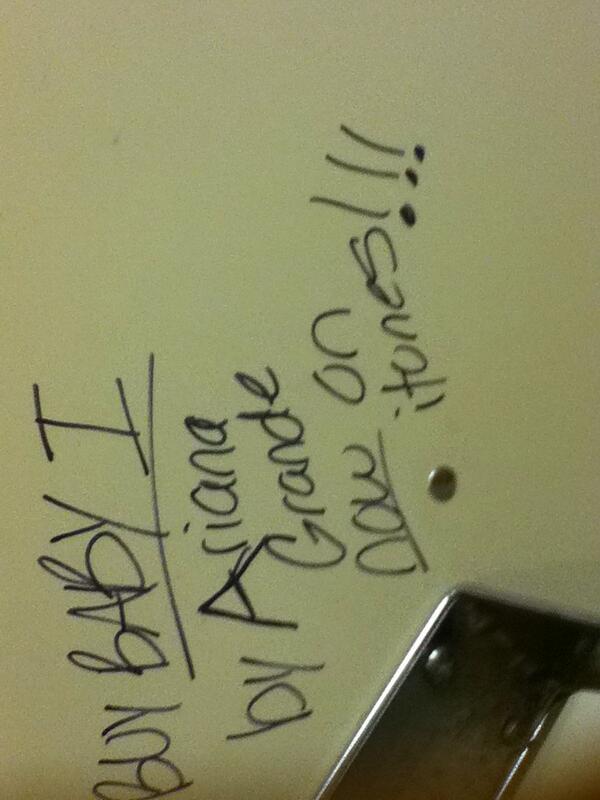 BUY BABY I
by Ariana
Grande
now on
itunes!!!